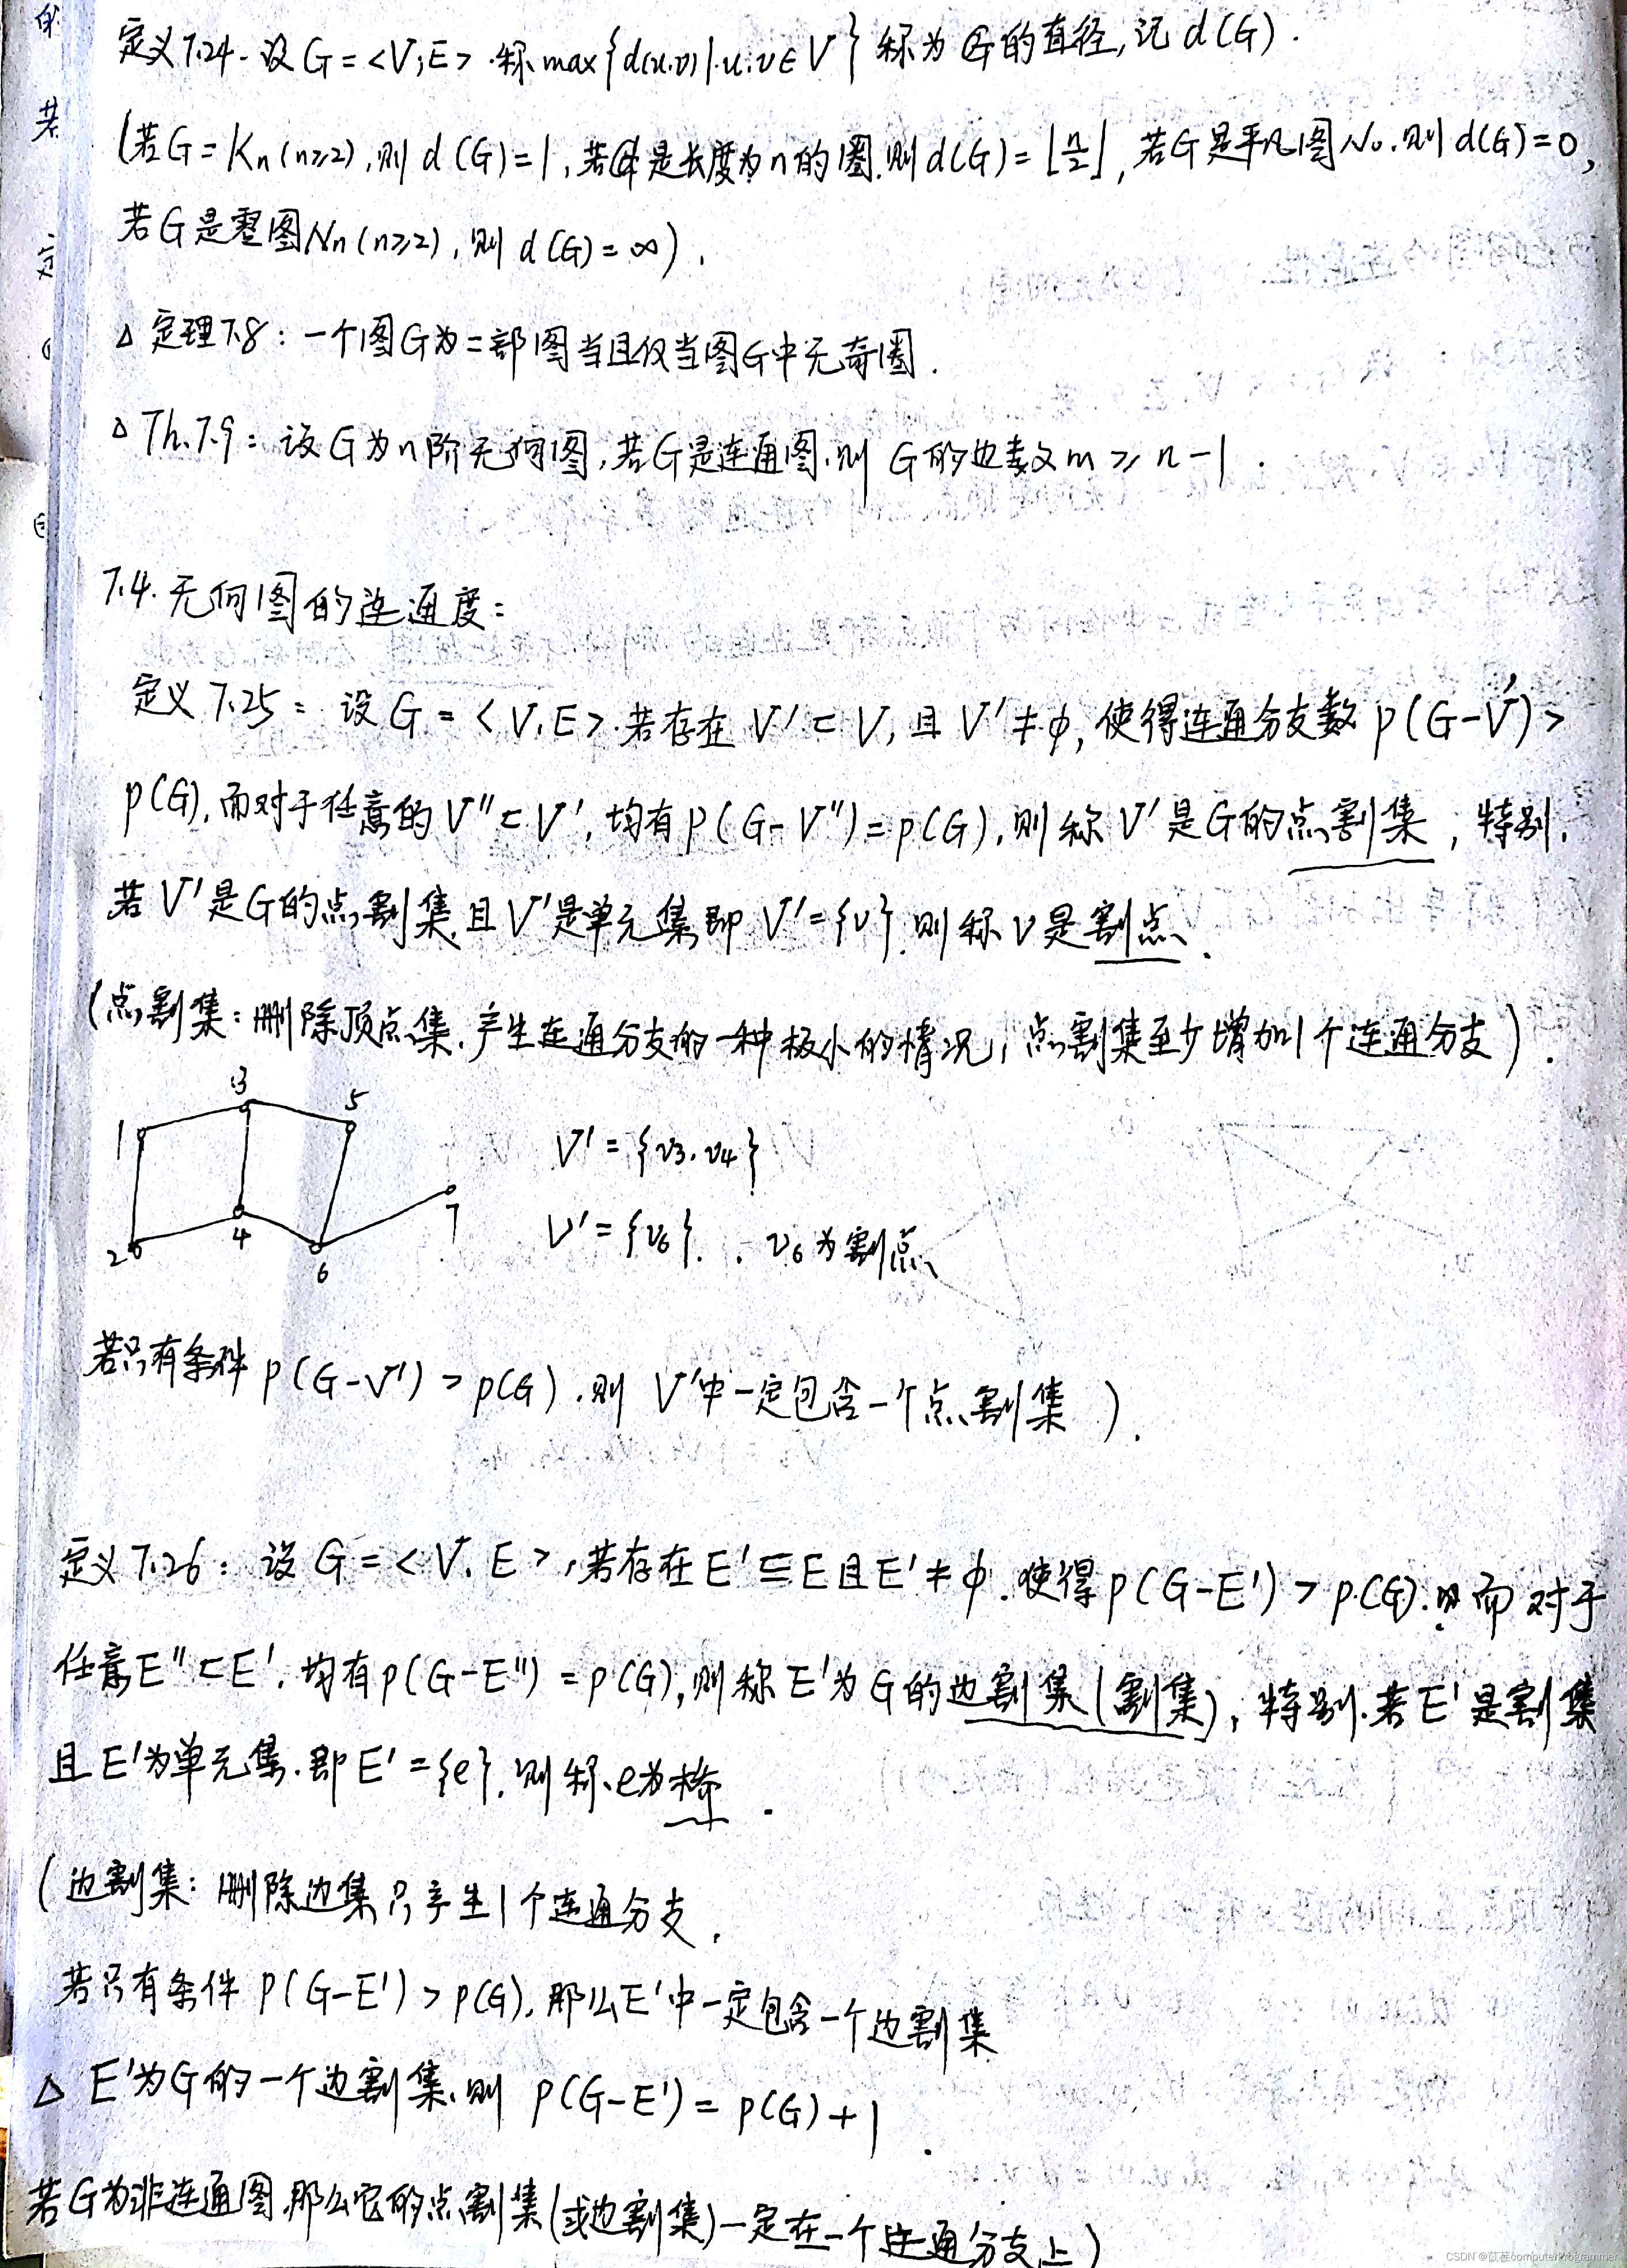 定义7.24. 设G=<V,E>.称max{d(u,v)|u,v∈V}称为G的直径,记d(G).
(若G=Kn(n≥2),则d(G)=1,若G是长度为n的圈.则d(G)=⌊n/2⌋,若G是平凡图N₀.则d(G)=0,
若G是零图Nn(n≥2),则d(G)=∞).
△ 定理7.8: 一个图G为二部图当且仅当图G中无奇圈.
△ Th.7.9: 设G为n阶无向图,若G是连通图,则 G的边数m≥n-1.
7.4. 无向图的连通度:
定义7.25: 设G=<V,E>.若存在V'⊂V,且V'≠φ,使得连通分支数p(G-V')>
p(G),而对于任意的V''⊂V',均有p(G-V'')=p(G),则称V'是G的点割集,特别.
若V'是G的点割集且V'是单元集即V'={v}.则称v是割点.
(点割集:删除顶点集,产生连通分支的一种极小的情况,点割集至少增加1个连通分支).
3
5
1
V'={v3,v4}
7
2
4
6
V'={v6}. v6为割点
若只有条件p(G-V')>p(G).则V'中一定包含一个点割集).
定义7.26: 设G=<V,E>,若存在E'⊆E且E'≠φ.使得p(G-E')>p(G).而对于
任意E''⊂E',均有p(G-E'')=p(G),则称E'为G的边割集(割集),特别.若E'是割集
且E'为单元集.即E'={e}.则称e为桥.
(边割集:删除边集只产生1个连通分支.
若只有条件p(G-E')>p(G),那么E'中一定包含一个边割集
△ E'为G的一个边割集,则 p(G-E')=p(G)+1.
若G为非连通图,那么它的点割集(或边割集)一定在一个连通分支上)
CSDN @苡荏computerProgrammer